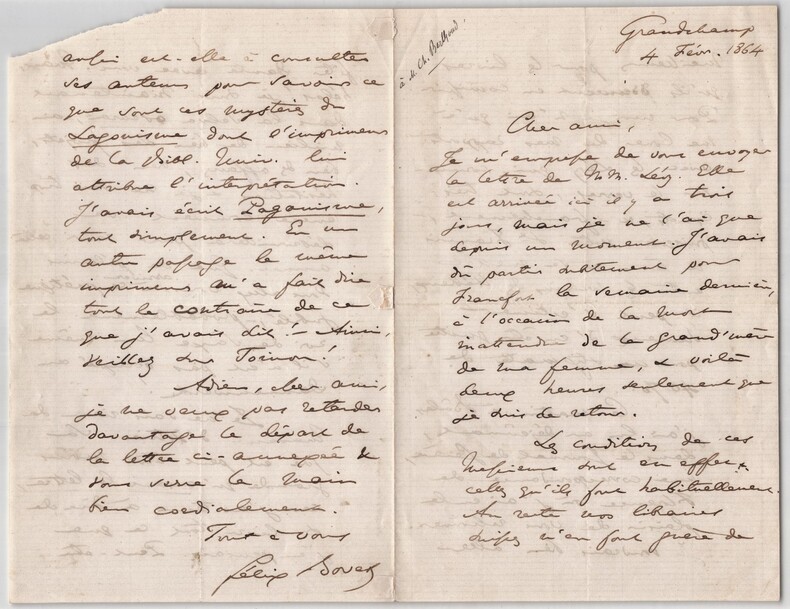 Grandchamp
4 Févr. 1864
à M. Ch. Berthoud.
Cher ami,
Je m'empresse de vous envoyer
la lettre de MM. Lévy. Elle
est arrivée ici il y a trois
jours, mais je ne l'ai que
depuis un moment. J'avais
dû partir subitement pour
Francfort la semaine dernière,
à l'occasion de la mort
inattendue de la grand'mère
de ma femme, & voilà
deux heures seulement que
je suis de retour.
Les conditions de ces
Messieurs sont en effet
celles qu'ils font habituellement.
Au reste nos libraires
suisses n'en font guère de
aussi est-elle à consulter
ses auteurs pour savoir ce
que sont ces mystères du
Lagonisme dont l'imprimeur
de la Bibl. Univ. lui
attribue l'interprétation.
J'avais écrit Paganisme,
tout simplement. En un
autre passage le même
imprimeur m'a fait dire
tout le contraire de ce
que j'avais dit! – Ainsi,
veillez sur Toinon!
Adieu, cher ami,
je ne veux pas retarder
davantage le départ de
la lettre ci-annexée &
vous serre la main
bien cordialement.
Tout à vous
Félix Bovet